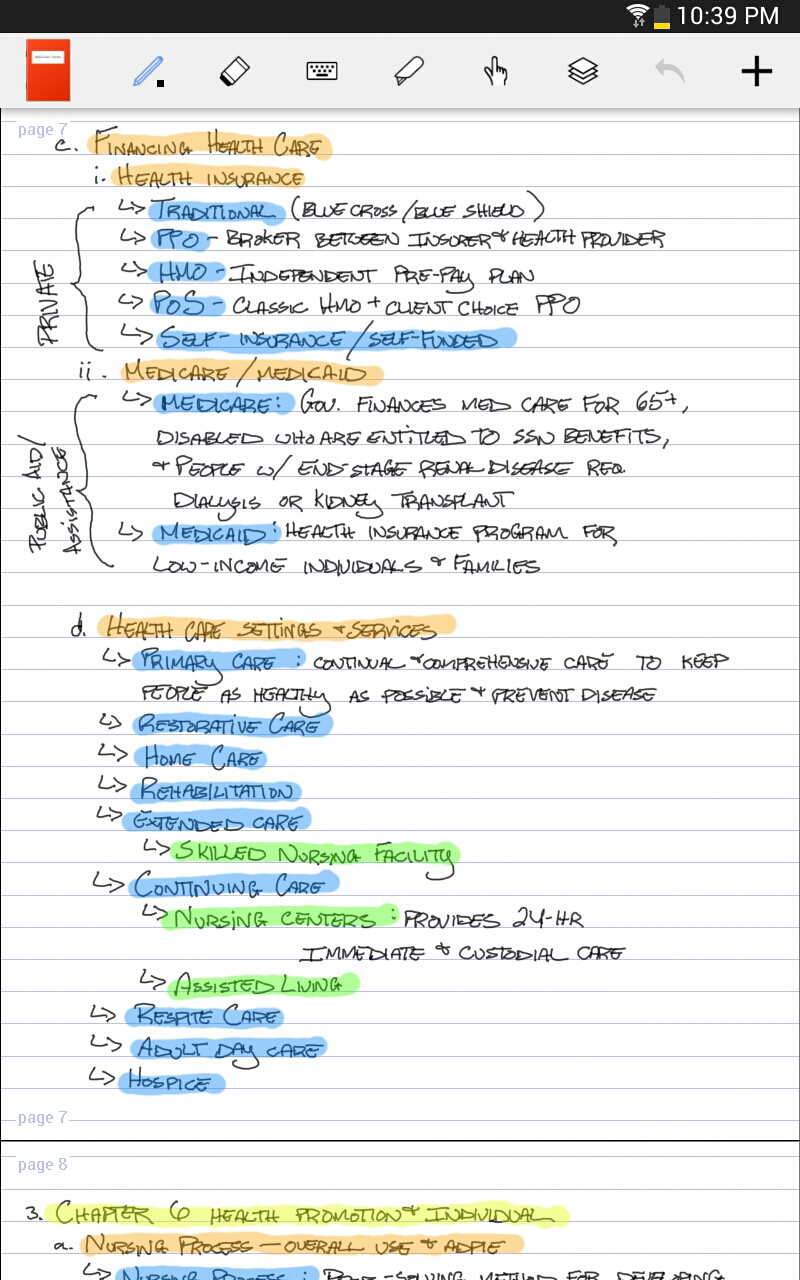 10:39 PM
page 7
c. FINANCING HEALTH CARE
i. HEALTH INSURANCE
↳ TRADITIONAL (BLUE CROSS/BLUE SHIELD)
↳ PPO - BROKER BETWEEN INSURER & HEALTH PROVIDER
↳ HMO - INDEPENDENT PRE-PAY PLAN
↳ POS - CLASSIC HMO + CLIENT CHOICE PPO
↳ SELF-INSURANCE/SELF-FUNDED
PRIVATE
ii. MEDICARE/MEDICAID
↳ MEDICARE: GOV. FINANCES MED CARE FOR 65+,
DISABLED WHO ARE ENTITLED TO SSN BENEFITS,
& PEOPLE W/ END-STAGE RENAL DISEASE REQ.
DIALYSIS OR KIDNEY TRANSPLANT
↳ MEDICAID: HEALTH INSURANCE PROGRAM FOR
LOW-INCOME INDIVIDUALS & FAMILIES
PUBLIC AID/
ASSISTANCE
d. HEALTH CARE SETTINGS & SERVICES
↳ PRIMARY CARE: CONTINUAL & COMPREHENSIVE CARE TO KEEP
PEOPLE AS HEALTHY AS POSSIBLE & PREVENT DISEASE
↳ RESTORATIVE CARE
↳ HOME CARE
↳ REHABILITATION
↳ EXTENDED CARE
↳ SKILLED NURSING FACILITY
↳ CONTINUING CARE
↳ NURSING CENTERS: PROVIDES 24-HR
IMMEDIATE & CUSTODIAL CARE
↳ ASSISTED LIVING
↳ RESPITE CARE
↳ ADULT DAY CARE
↳ HOSPICE
page 7
page 8
3. CHAPTER 6 HEALTH PROMOTION & INDIVIDUAL
a. NURSING PROCESS - OVERALL USE & ADPIE
↳ NURSING PROCESS: PROB-SOLVING METHOD FOR DEVELOPING